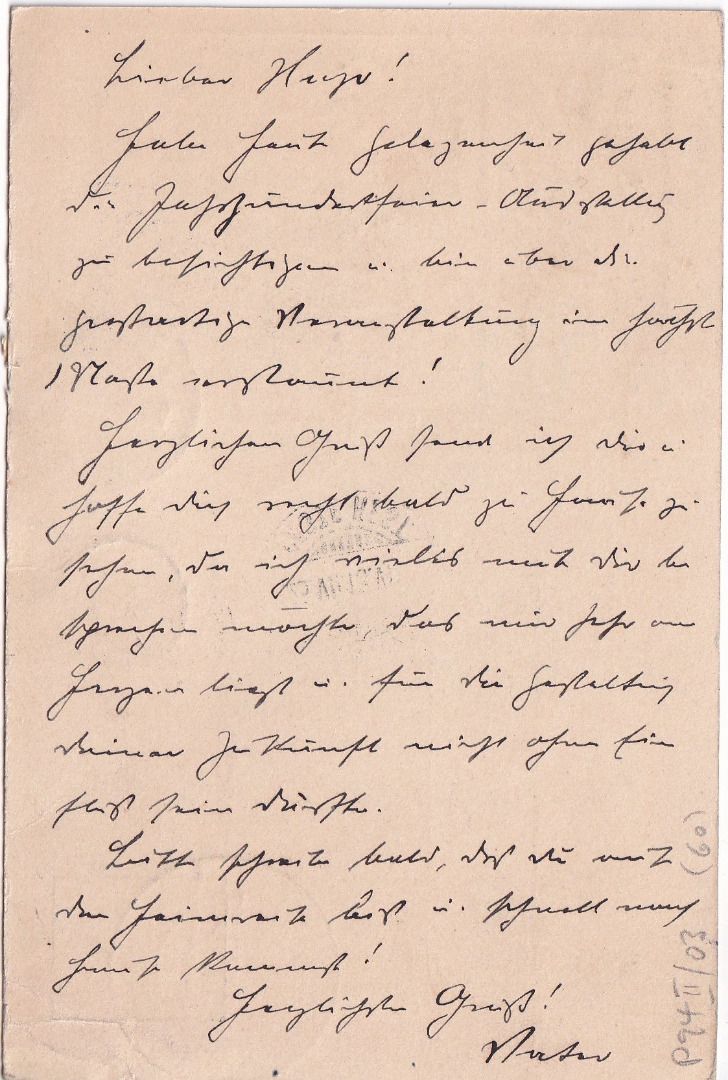 Lieber Hugo!
Habe heute Gelegenheit gehabt
die Jahrhundertfeier-Ausstellung
zu besichtigen u. bin über die
grossartige Veranstaltung im höchst
Maße erstaunt!
Herzlichen Gruß send ich dir u
hoffe dich recht bald zu Hause zu
sehen, da ich vieles mit dir be
sprechen möchte das mir sehr am
Herzen liegt u. für die Gestaltung
deiner Zukunft nicht ohne Ein
fluß sein dürfte.
Bitte schreibe bald, daß du auf
der Heimreise bist u. schnell nach
Hause kommst!
Herzlichen Gruß!
Vater
P94 II/03 (60)